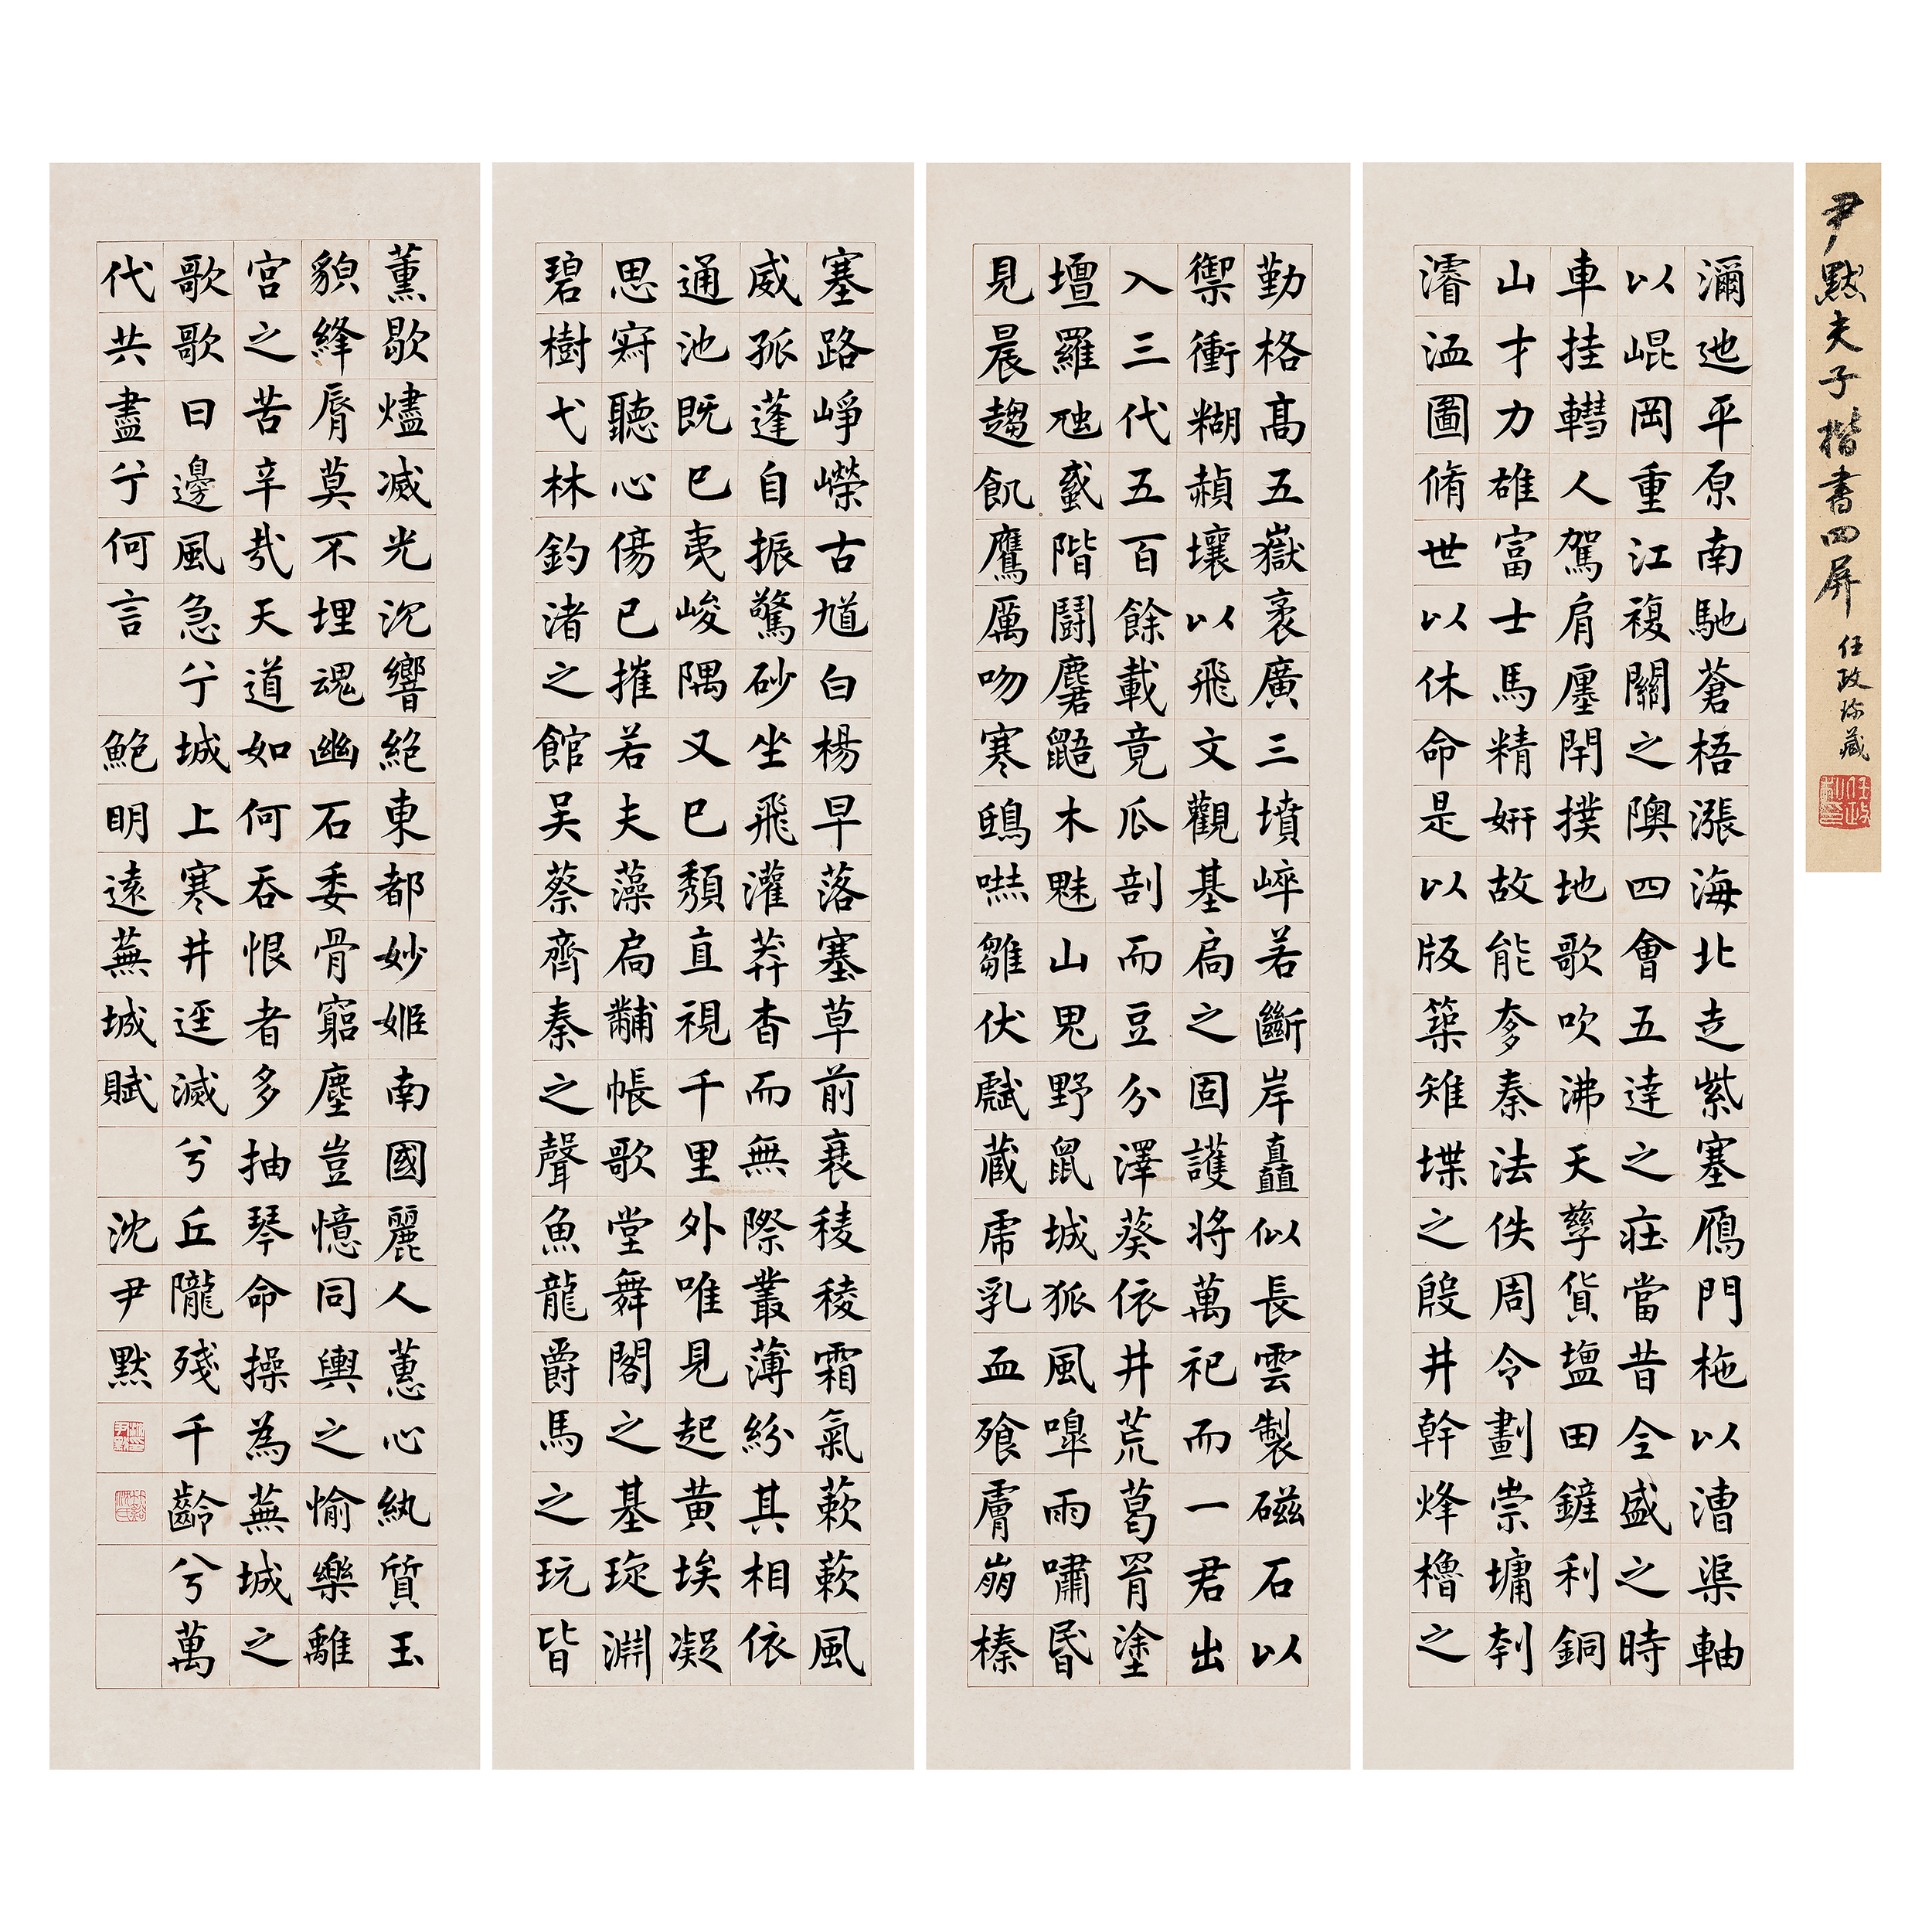 尹默夫子楷書四屏
任政珍藏
任政
瀰迆平原南馳蒼梧漲海北走紫塞鴈門柂以漕渠軸
以崐岡重江複關之隩四會五達之莊當昔全盛之時
車挂轊人駕肩廛閈撲地歌吹沸天孳貨鹽田鏟利銅
山才力雄富士馬精妍故能奓秦法佚周令劃崇墉刳
濬洫圖脩世以休命是以版築雉堞之殷井幹烽櫓之
勤格高五嶽袤廣三墳崪若斷岸矗似長雲製磁石以
禦衝糊赬壤以飛文觀基扃之固護將萬祀而一君出
入三代五百餘載竟瓜剖而豆分澤葵依井荒葛罥塗
壇羅虺蜮階鬪麏鼯木魅山鬼野鼠城狐風嘷雨嘯昏
見晨趨飢鷹厲吻寒鴟嚇雛伏虣藏虎乳血飱膚崩榛
塞路崢嶸古馗白楊早落塞草前衰稜稜霜氣蔌蔌風
威孤蓬自振驚砂坐飛灌莽杳而無際叢薄紛其相依
通池既已夷峻隅又已頹直視千里外唯見起黃埃凝
思寂聽心傷已摧若夫藻扃黼帳歌堂舞閣之基琁淵
碧樹弋林釣渚之館吳蔡齊秦之聲魚龍爵馬之玩皆
薰歇燼滅光沉響絕東都妙姬南國麗人蕙心紈質玉
貌絳脣莫不埋魂幽石委骨窮塵豈憶同輿之愉樂離
宮之苦辛哉天道如何吞恨者多抽琴命操為蕪城之
歌歌曰邊風急兮城上寒井逕滅兮丘隴殘千齡兮萬
代共盡兮何言 鮑明遠蕪城賦 沈尹默